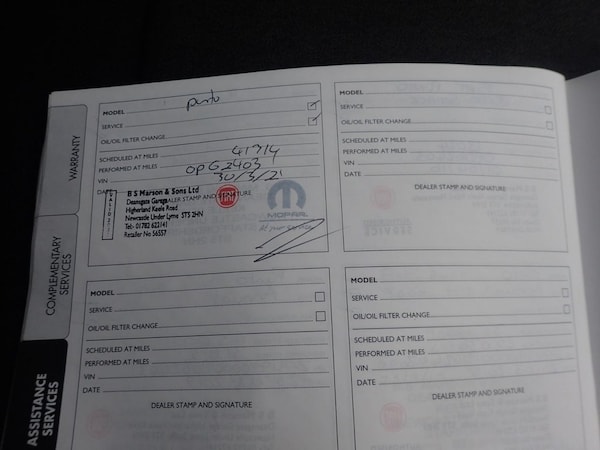 WARRANTY
COMPLEMENTARY
SERVICES
ASSISTANCE
SERVICES
MODEL punto
SERVICE
OIL/OIL FILTER CHANGE
SCHEDULED AT MILES
PERFORMED AT MILES 41314
VIN OPG2403
DATE 30/3/21
DEALER STAMP AND SIGNATURE
B S Marson & Sons Ltd
Deansgate Garage
Higherland Keele Road
Newcastle Under Lyme ST5 2HN
Tel:- 01782 622141
Retailer No 56557
FIAT
MOPAR
At your service
MODEL
SERVICE
OIL/OIL FILTER CHANGE
SCHEDULED AT MILES
PERFORMED AT MILES
VIN
DATE
DEALER STAMP AND SIGNATURE
MODEL
SERVICE
OIL/OIL FILTER CHANGE
SCHEDULED AT MILES
PERFORMED AT MILES
VIN
DATE
DEALER STAMP AND SIGNATURE
MODEL
SERVICE
OIL/OIL FILTER CHANGE
SCHEDULED AT MILES
PERFORMED AT MILES
VIN
DATE
DEALER STAMP AND SIGNATURE